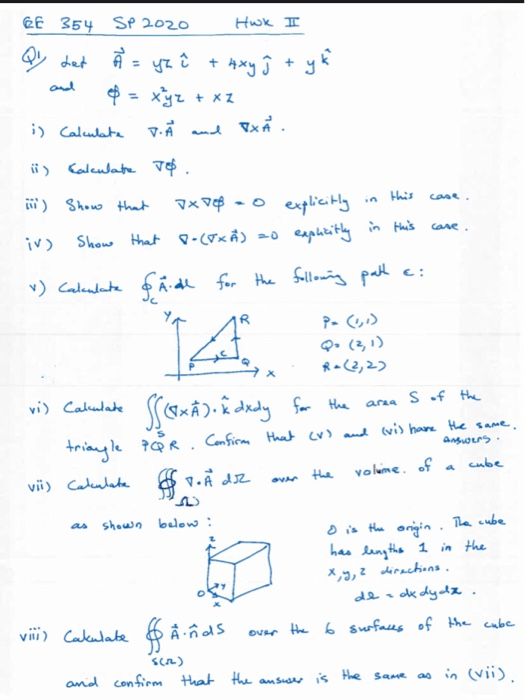 EE 354 SP 2020 Hwk II
Q1) Let A⃗ = yz î + 4xy ĵ + y k̂
and φ = x²yz + xz
i) Calculate ∇·A⃗ and ∇×A⃗.
ii) Calculate ∇φ.
iii) Show that ∇×∇φ = 0 explicitly in this case.
iv) Show that ∇·(∇×A⃗) = 0 explicitly in this case.
v) Calculate ∮_C A⃗·dl for the following path c:
y R P = (1,1)
C Q = (2,1)
P Q x R = (2,2)
vi) Calculate ∬_S (∇×A⃗)·k̂ dxdy for the area S of the
triangle PQR. Confirm that (v) and (vi) have the same
answers.
vii) Calculate ∰_Ω ∇·A⃗ dΩ over the volume of a cube
as shown below:
z O is the origin. The cube
has lengths 1 in the
O y x,y,z directions.
x dΩ = dxdydz.
viii) Calculate ∯_S(Ω) A⃗·n̂ dS over the 6 surfaces of the cube
and confirm that the answer is the same as in (vii).